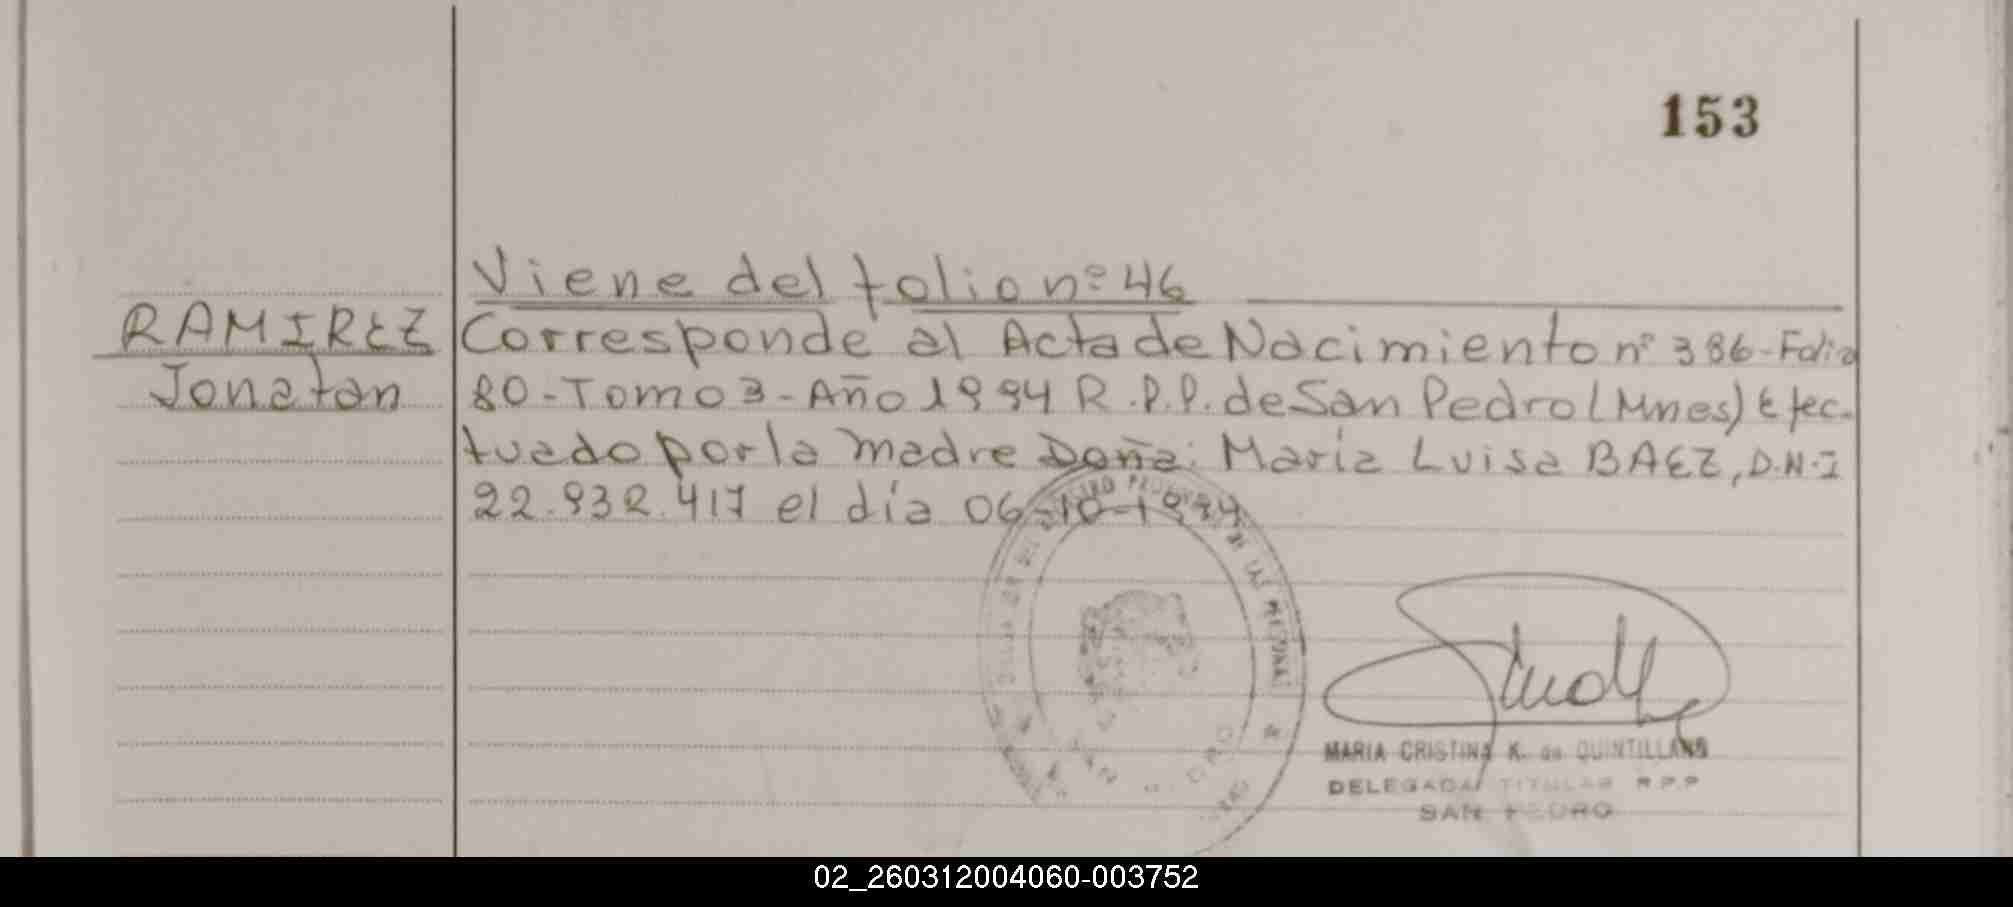 153
Viene del folio nº 46
RAMIREZ Corresponde al Acta de Nacimiento nº 386-Folio
Jonatan 80-Tomo 3-Año 1994 R.P.P. de San Pedro (Mnes) Efec-
tuado por la madre Doña: María Luisa BAEZ, D.N.I
22.932.417 el día 06-10-1994
MARIA CRISTINA K. de QUINTILLANS
DELEGADA TITULAR R.P.P
SAN PEDRO
02_260312004060-003752